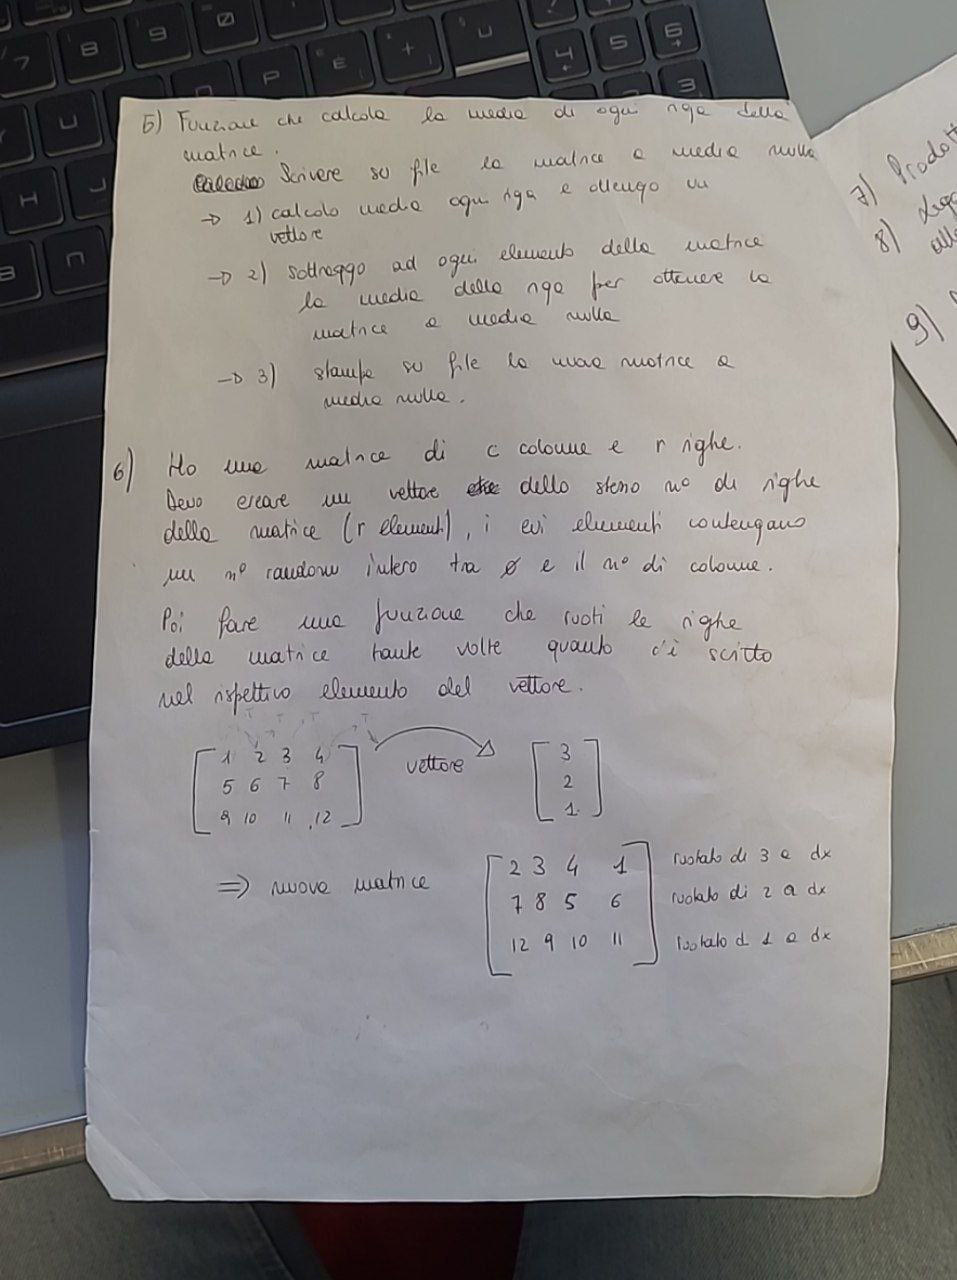 7 8 9 Ø
U P È + U 4 5 6
3
H J
N
5) Funzione che calcola la media di ogni riga della
matrice.
Scrivere su file la matrice a media nulla
→ 1) calcolo media ogni riga e ottengo un
vettore
→ 2) sottraggo ad ogni elemento della matrice
la media della riga per ottenere la
matrice a media nulla
→ 3) stampa su file la nuova matrice a
media nulla.
6) Ho una matrice di c colonne e r righe.
Devo creare un vettore dello stesso n° di righe
della matrice (r elementi), i cui elementi contengano
un n° random intero tra ø e il n° di colonne.
Poi fare una funzione che ruoti le righe
della matrice tante volte quanto c'è scritto
nel rispettivo elemento del vettore.
1 2 3 4
5 6 7 8
9 10 11 12
vettore
3
2
1
⇒ nuova matrice
2 3 4 1 ruotato di 3 a dx
7 8 5 6 ruotato di 2 a dx
12 9 10 11 ruotato d 1 a dx
7) Prodott
8)
9)